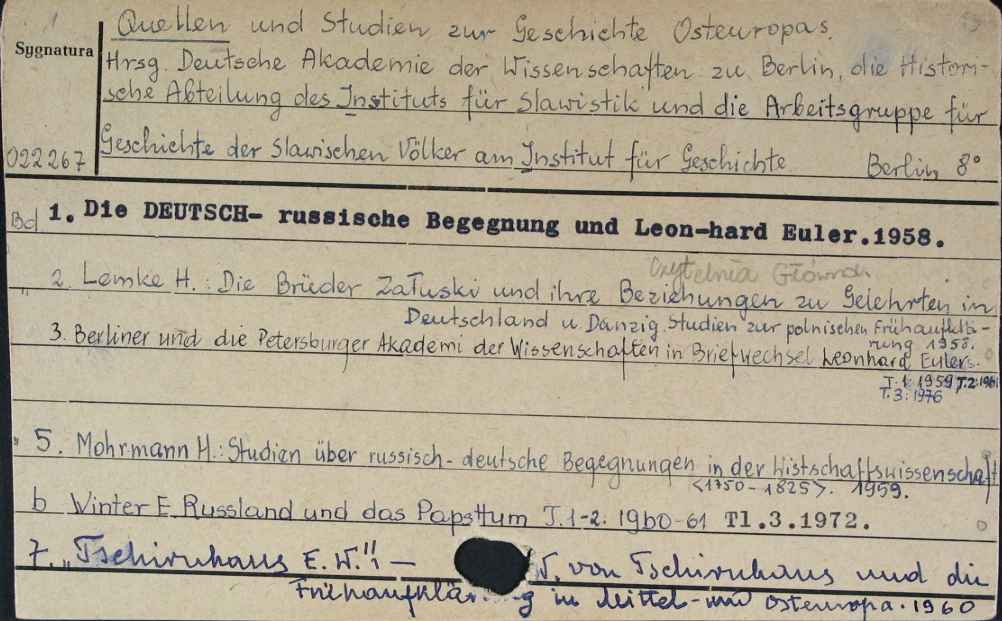 Quellen und Studien zur Geschichte Osteuropas.
Sygnatura
Hrsg. Deutsche Akademie der Wissenschaften zu Berlin, die Histori-
sche Abteilung des Instituts für Slawistik und die Arbeitsgruppe für
Geschichte der Slawischen Völker am Institut für Geschichte Berlin 8°
022267
Bd 1. Die DEUTSCH- russische Begegnung und Leon-hard Euler.1958.
Czytelnia Główna
" 2. Lemke H.: Die Brüder Załuski und ihre Beziehungen zu Gelehrten in
Deutschland u Danzig. Studien zur polnischen Frühaufklä-
rung 1958.
3. Berliner und die Petersburger Akademi der Wissenschaften in Briefwechsel Leonhard Eulers.
T.1: 1959 T.2: 1961
T.3: 1976
" 5. Mohrmann H.: Studien über russisch-deutsche Begegnungen in der Wistschaftswissenschaft
<1750-1825>. 1959.
6 Winter E. Russland und das Papsttum T.1-2. 1960-61 Tl.3.1972.
7. "Tschirnhaus E. W." i — W. von Tschirnhaus und die
Frühaufklär g in Mittel- und Osteuropa. 1960